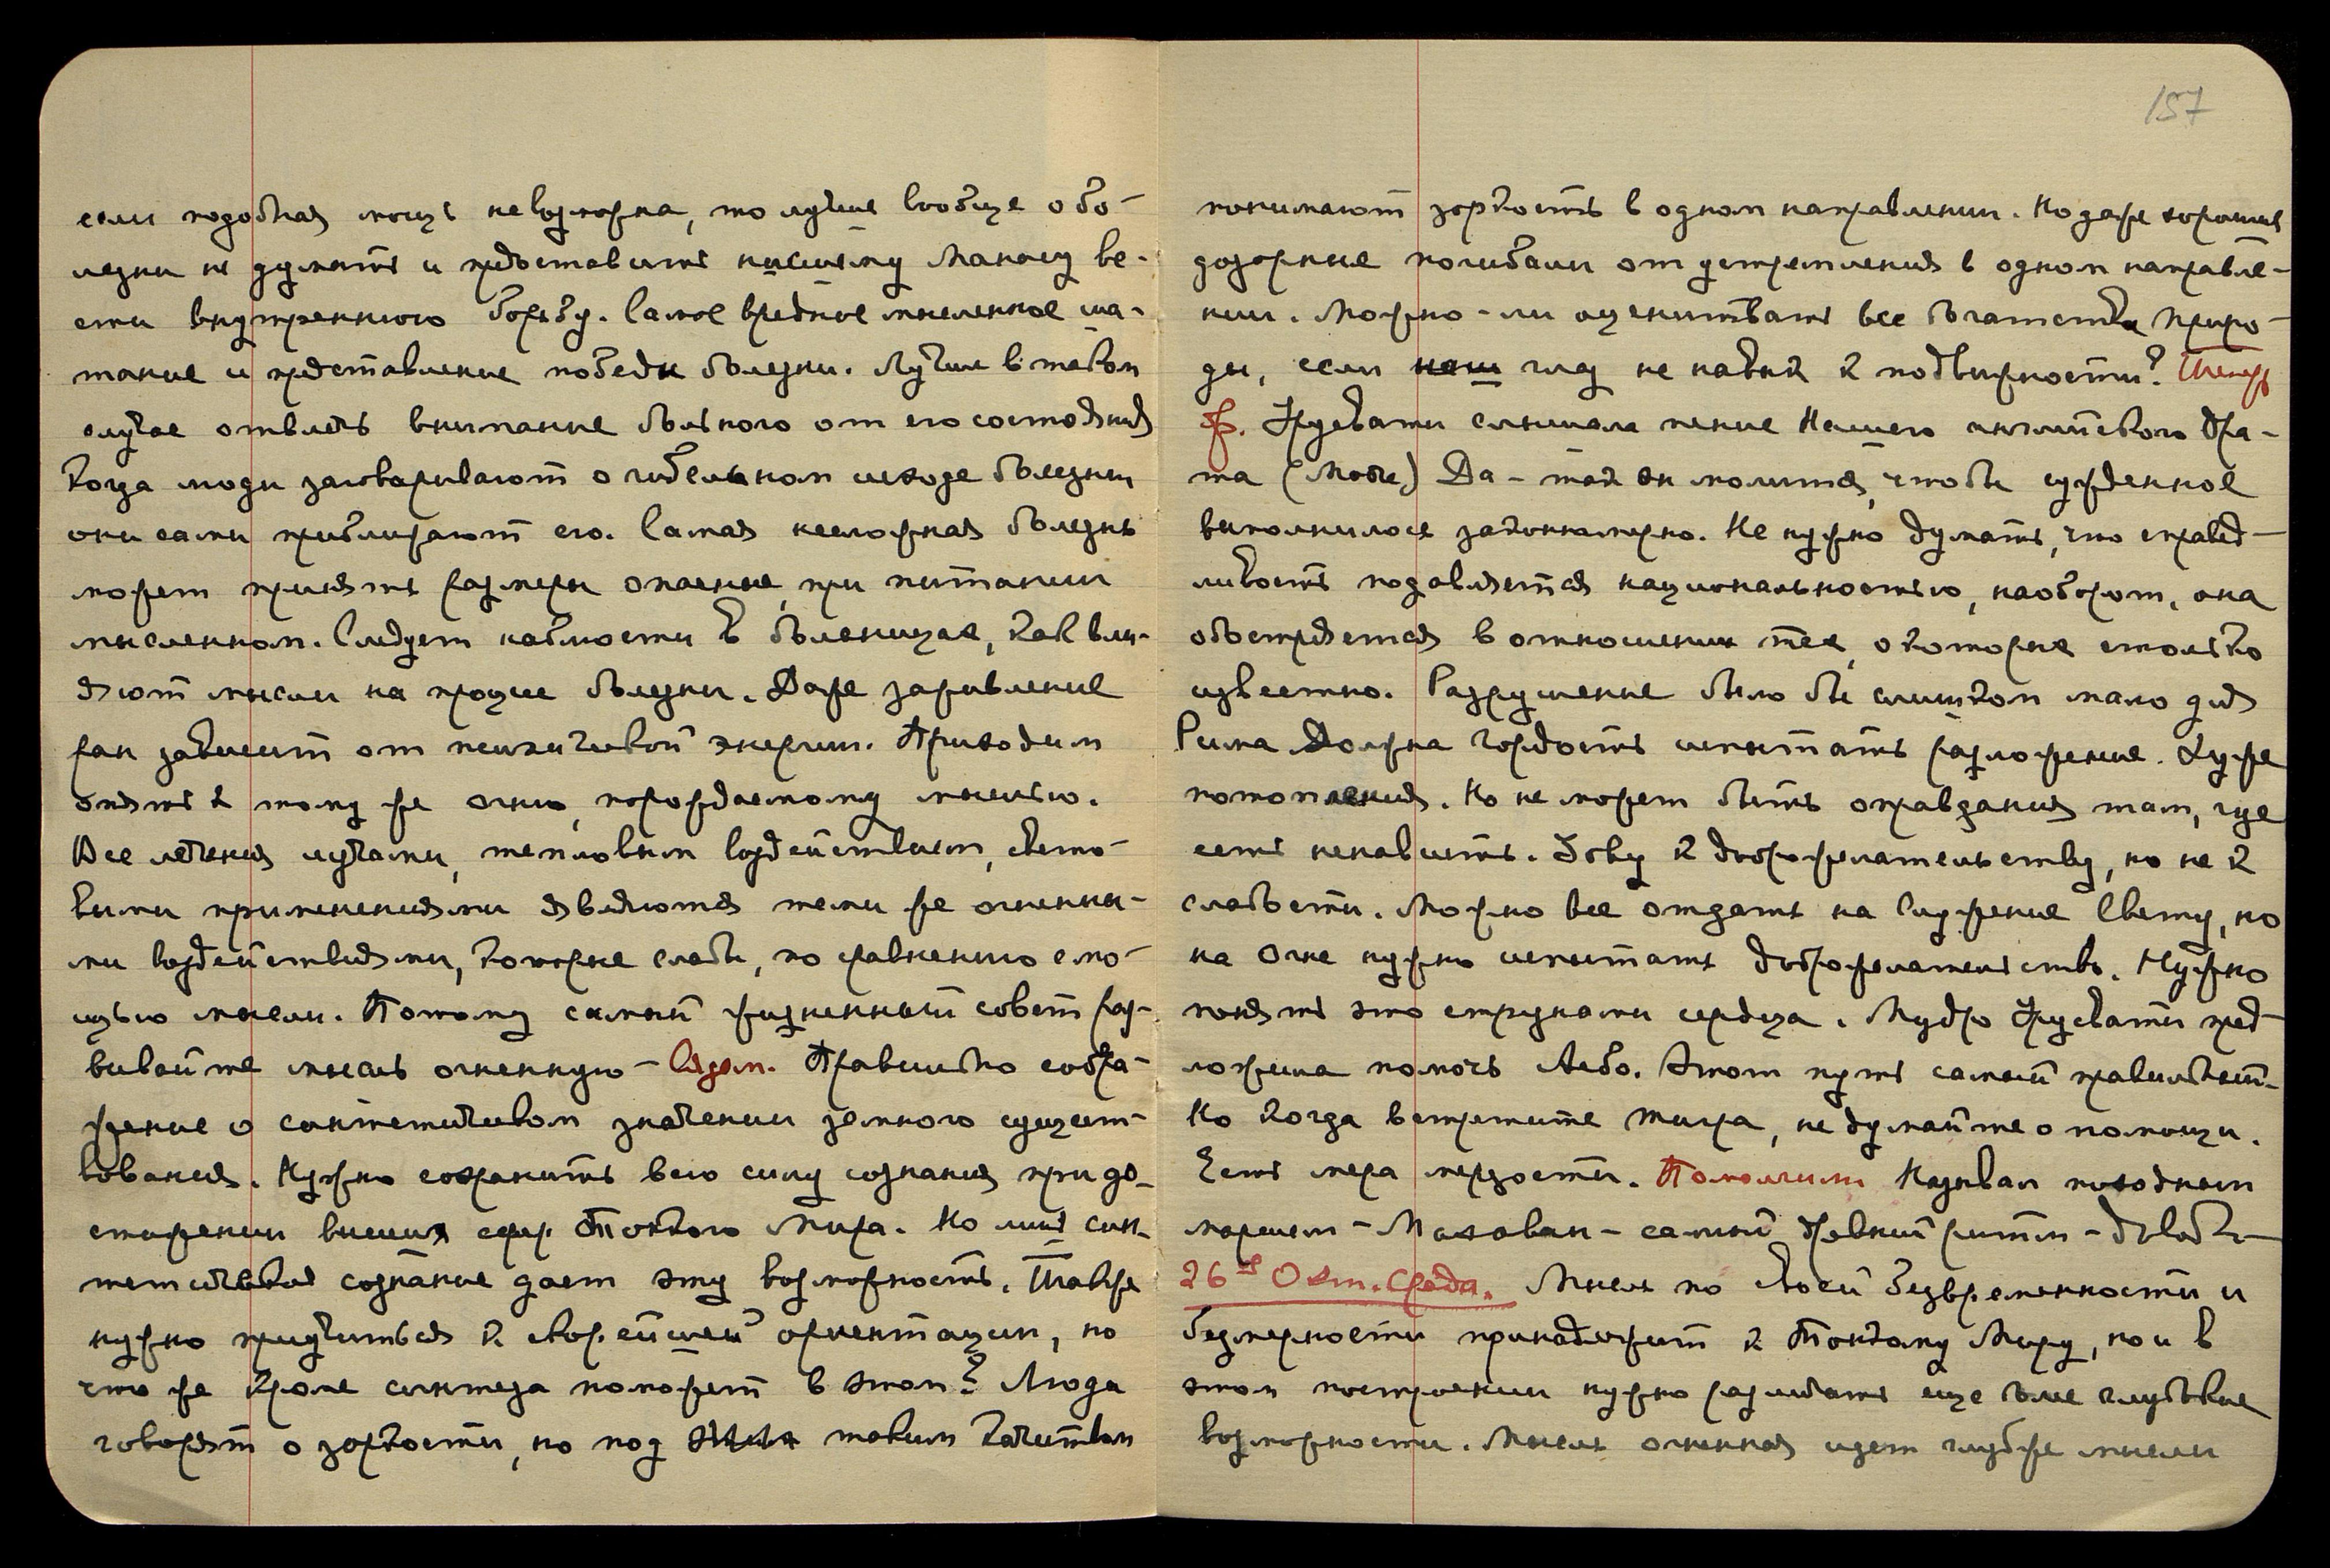 если подобная мощь невозможна, то лучше вообще о бо-
лезни не думать и предоставить низшему Манасу ве-
сти внутреннюю борьбу. Самое вредное мысленное ша-
тание и представление победы болезни. Лучше в таком
случае отвлечь внимание больного от его состояния
Когда люди заговаривают о гибельном исходе болезни,
они сами приближают его. Самая несложная болезнь
может принять размеры опасные, при питании
мысленном. Следует наблюсти в больницах, как вли-
яют мысли на процес болезни. Даже заживление
ран зависит от психической энергии. Приходим
опять к тому же огню, порождаемому мыслью.
Все лечения лучами, тепловым воздействием, свето-
выми применениями являются теми же огненны-
ми воздействиями, которые слабы, по сравнению с мо-
щью мысли. Потому самый жизненный совет раз-
вивайте мысль огненную - Сядем. Правильно сообра-
жение о синтетическом значении земного сущест-
вования. Нужно сохранить всю силу сознания при до-
стижении высших сфер Тонкого Мира. Но лишь син-
тетическое сознание дает эту возможность. Также
нужно приучиться к скорейшей ориентации, но
что же кроме синтеза поможет в этом? Люди
говорят о зоркости, но под таким качеством
157
понимают зоркость в одном направлении. Но даже хорошие
дозорные погибали от устремления в одном направле-
нии. Можно-ли оценивать все богатства Приро-
ды, если наш глаз не навык к подвижности?
Урусвати слышала пение Нашего английского Бра-
та Да - так он молится, чтобы сужденное
выполнилось закономерно. Не нужно думать, что справед-
ливость подавляется национальностью, наоборот, она
обостряется в отношении тех, о которых столько
известно. Разрушение было бы слишком мало для
Рима. Должна гордость испытать разложение. Хуже
потопления. Но не может быть оправдания там, где
есть ненависть. Зову к доброжелательству, но не к
слабости. Можно все отдать на Служение Свету, но
на Огне нужно испытать доброжелательство. Нужно
понять это струнами сердца. Мудро Урусвати пред-
ложила помочь Либо. Этот путь самый правильный.
Но когда встретите тигра, не думайте о помощи.
Есть мера мерзости. Помолчим Называл походным
маршем - Махаван - самый древний ритм -
26ое Окт. Среда. Мысль по своей безвременности и
безмерности принадлежит к Тонкому Миру, но и в
этом построении нужно различать еще более глубокие
возможности. Мысль огненная идет глубже мысли